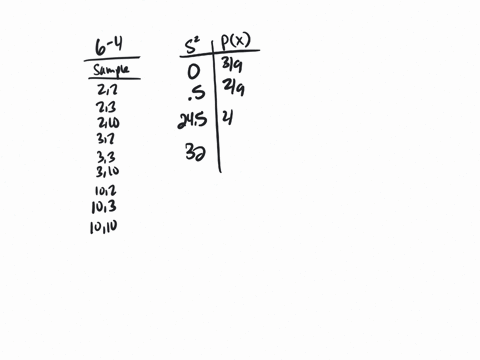 6-4
Sample
2,2
2,3
2,10
3,2
3,3
3,10
10,2
10,3
10,10
S² P(x)
0 3/9
.5 2/9
24.5 2/
32